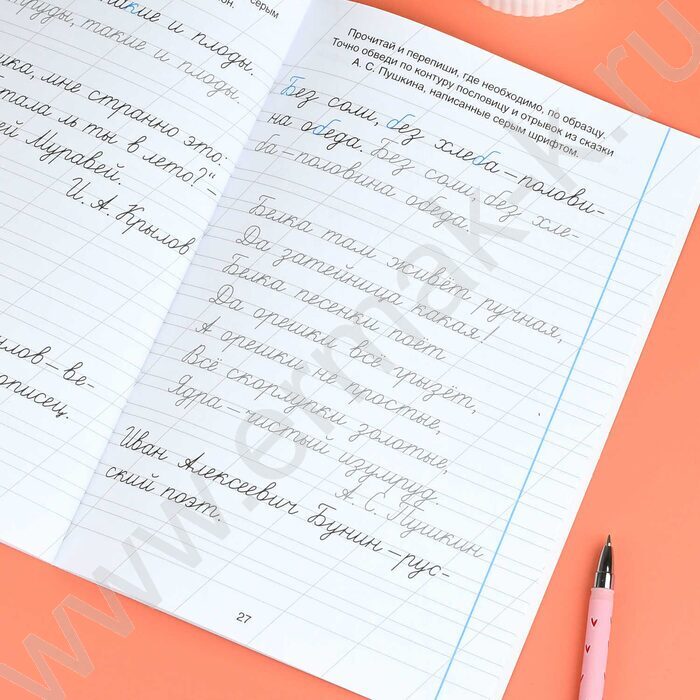 серым
такие и плоды.
труды, такие и плоды.
мне странно это:
ль ты в лето?"–
Муравей.
И. А. Крылов
писец.
Прочитай и перепиши, где необходимо, по образцу.
Точно обведи по контуру пословицу и отрывок из сказки
А. С. Пушкина, написанные серым шрифтом.
Без соли, без хлеба – полови-
на обеда. Без соли, без хле-
ба – половина обеда.
Белка там живёт ручная,
Да затейница какая!
Белка песенки поёт
Да орешки всё грызёт,
А орешки не простые,
Всё скорлупки золотые,
Ядра – чистый изумруд.
А. С. Пушкин
Иван Алексеевич Бунин – рус-
ский поэт.
27
www.ermak-k.ru